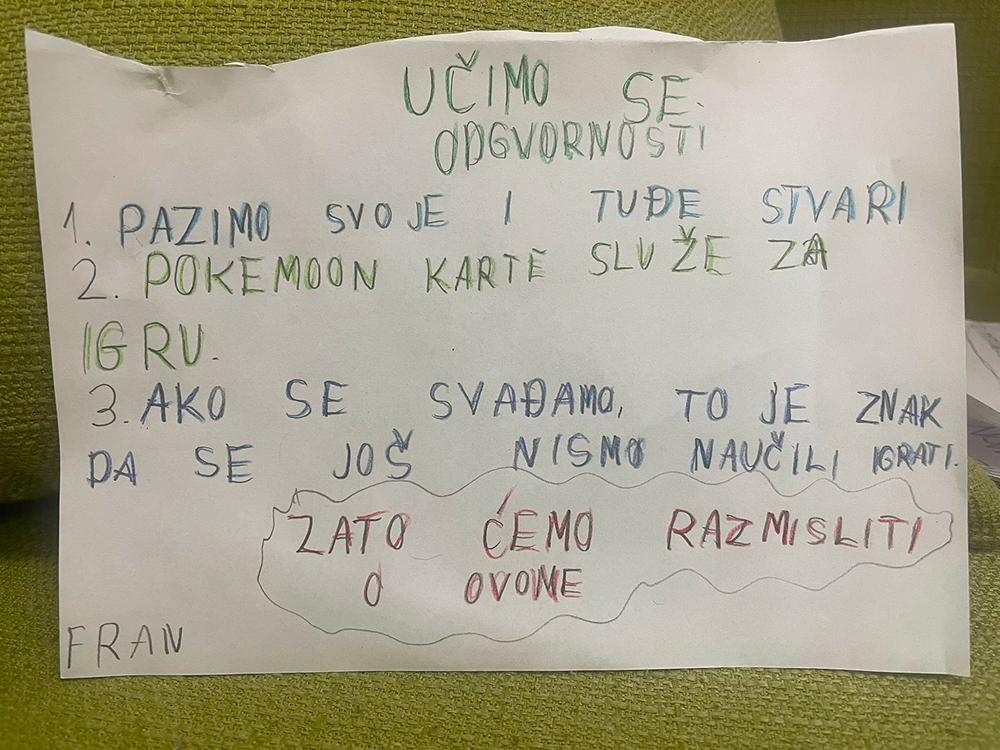 UČIMO SE
ODGVORNOSTI
1. PAZIMO SVOJE I TUĐE STVARI
2. POKEMOON KARTE SLUŽE ZA
IGRU.
3. AKO SE SVAĐAMO, TO JE ZNAK
DA SE JOŠ NISMO NAUČILI IGRATI.
ZATO ĆEMO RAZMISLITI
O OVOME
FRAN